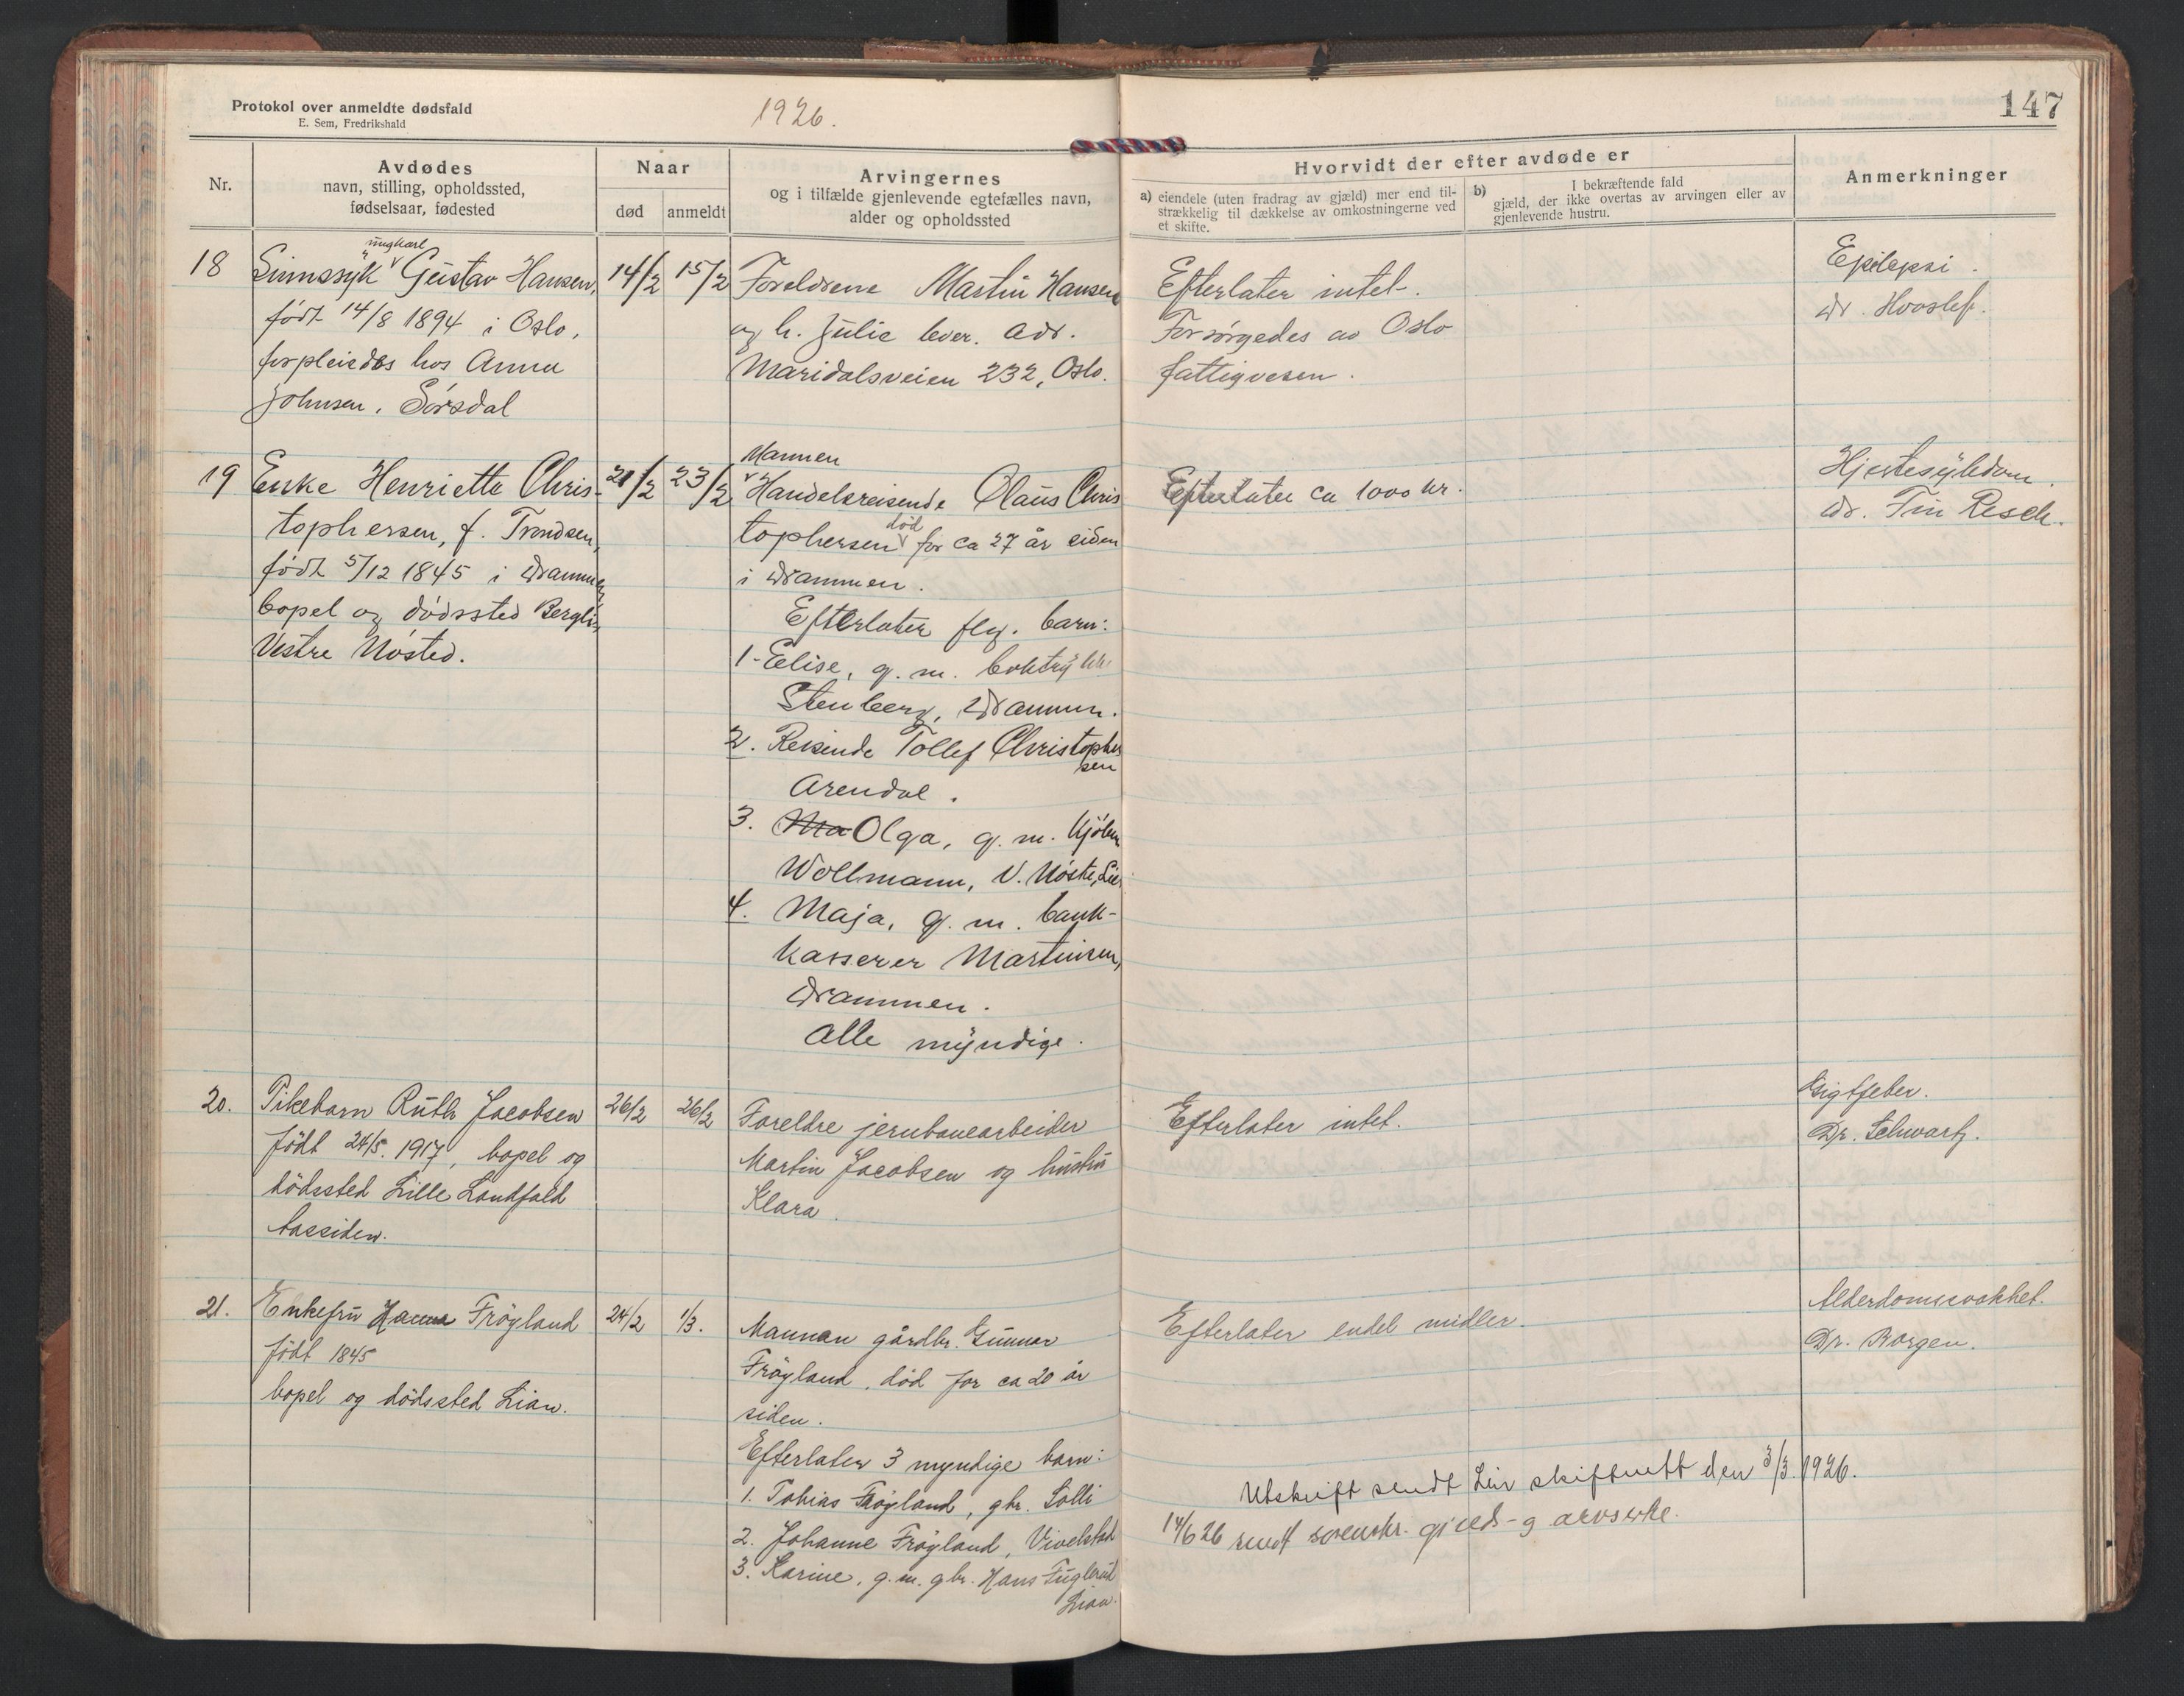 Protokol over anmeldte dødsfald
E. Sem, Fredrikshald
1926.
147
Nr.
Avdødes
navn, stilling, opholdssted,
fødselsaar, fødested
Naar
død
anmeldt
Arvingernes
og i tilfælde gjenlevende egtefælles navn,
alder og opholdssted
Hvorvidt der efter avdøde er
a) eiendele (uten fradrag av gjæld) mer end til-
strækkelig til dækkelse av omkostningerne ved
et skifte.
b) I bekræftende fald
gjæld, der ikke overtas av arvingen eller av
gjenlevende hustru.
Anmerkninger
18
ungkarl
Sinnssyk Gustav Hansen,
født 14/8 1894 i Oslo,
forpleiedes hos Anna
Johnsen, Sørsdal
14/2
15/2
Foreldrene Martin Hansen
og h. Julie lever. Adr.
Maridalsveien 232, Oslo.
Efterlater intet.
Forsørgedes av Oslo
fattigvesen.
Epilepsi.
Dr.
19
Enke Henriette Chris-
tophersen, f. Trondsen,
født 5/12 1845 i Drammen,
bopel og dødssted Bergli,
Vestre Nøsted.
21/2
23/2
Mannen
Handelsreisende Olaus Chris
tophersen død for ca 27 år siden
i Drammen.
Efterlater flg. barn:
1. Elise, g. m. boktrykk
Stenberg, Drammen.
2. Reisende Tollef Christopher
sen
Arendal.
3. Ma Olga, g. m. kjøbm
Wollmann, V. Nøste, Lier
4. Maja, g. m. bank-
kasserer Martinsen,
Drammen.
Alle myndige.
Efterlater ca 1000 kr.
Hjertesykdom.
Dr. Finn Resch.
20.
Pikebarn Ruth Jacobsen
født 24/5. 1917, bopel og
dødssted Lille Landfald
Aassiden.
26/2
26/2
Foreldre jernbanearbeider
Martin Jacobsen og hustru
Klara.
Efterlater intet.
Gigtfeber.
Dr. Schwartz.
21.
Enkefru Hanna Frøyland
født 1845
bopel og dødssted Lian.
24/2
1/3.
Mannen gårdbr. Gunnar
Frøyland, død for ca 20 år
siden.
Efterlater 3 myndige barn:
1. Tobias Frøyland, gbr. Solli
2. Johanne Frøyland, Vivelstad
3. Karine, g. m. gbr. Hans Fuglerud
Lian.
Efterlater endel midler.
Alderdomssvakhet.
Dr. Borgen.
Utskrift sendt Lier skifterett den 3/3. 1926.
14/6 26 sendt sorenskr. gjelds- og